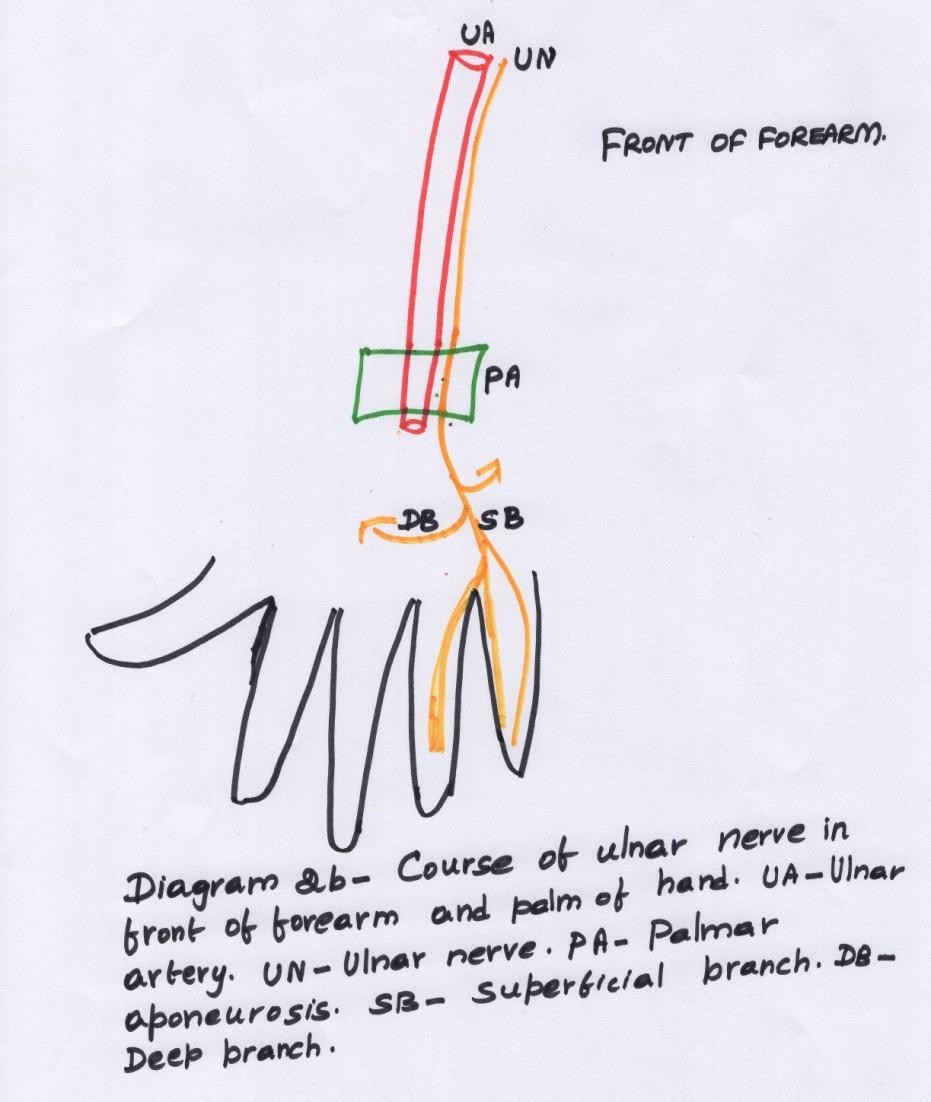 UA
UN
FRONT OF FOREARM.
PA
DB
SB
Diagram 2b- Course of ulnar nerve in
front of forearm and palm of hand. UA-Ulnar
artery. UN-Ulnar nerve. PA- Palmar
aponeurosis. SB- Superficial branch. DB-
Deep branch.